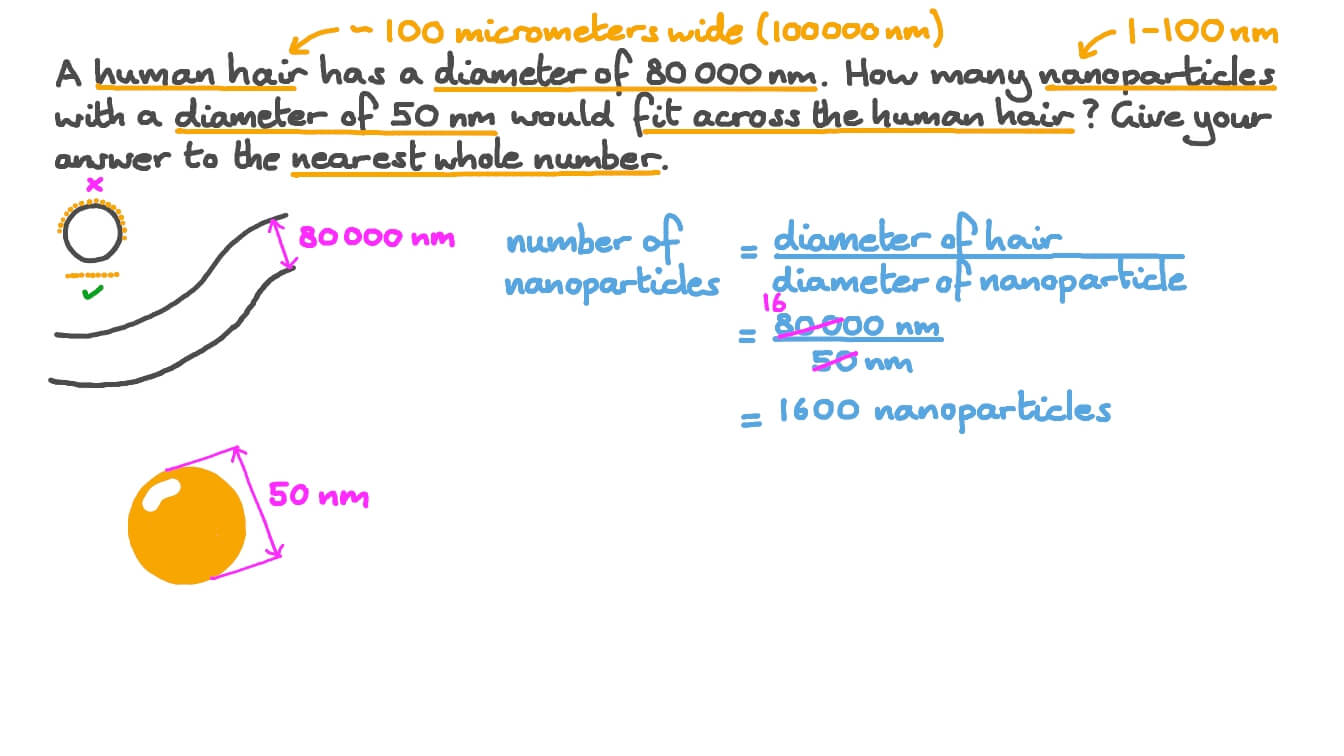 ~ 100 micrometers wide (100000 nm)
1-100 nm
A human hair has a diameter of 80 000 nm. How many nanoparticles
with a diameter of 50 nm would fit across the human hair? Give your
answer to the nearest whole number.
80 000 nm
50 nm
number of nanoparticles = diameter of hair
diameter of nanoparticle
16
= 80 000 nm
50 nm
= 1600 nanoparticles